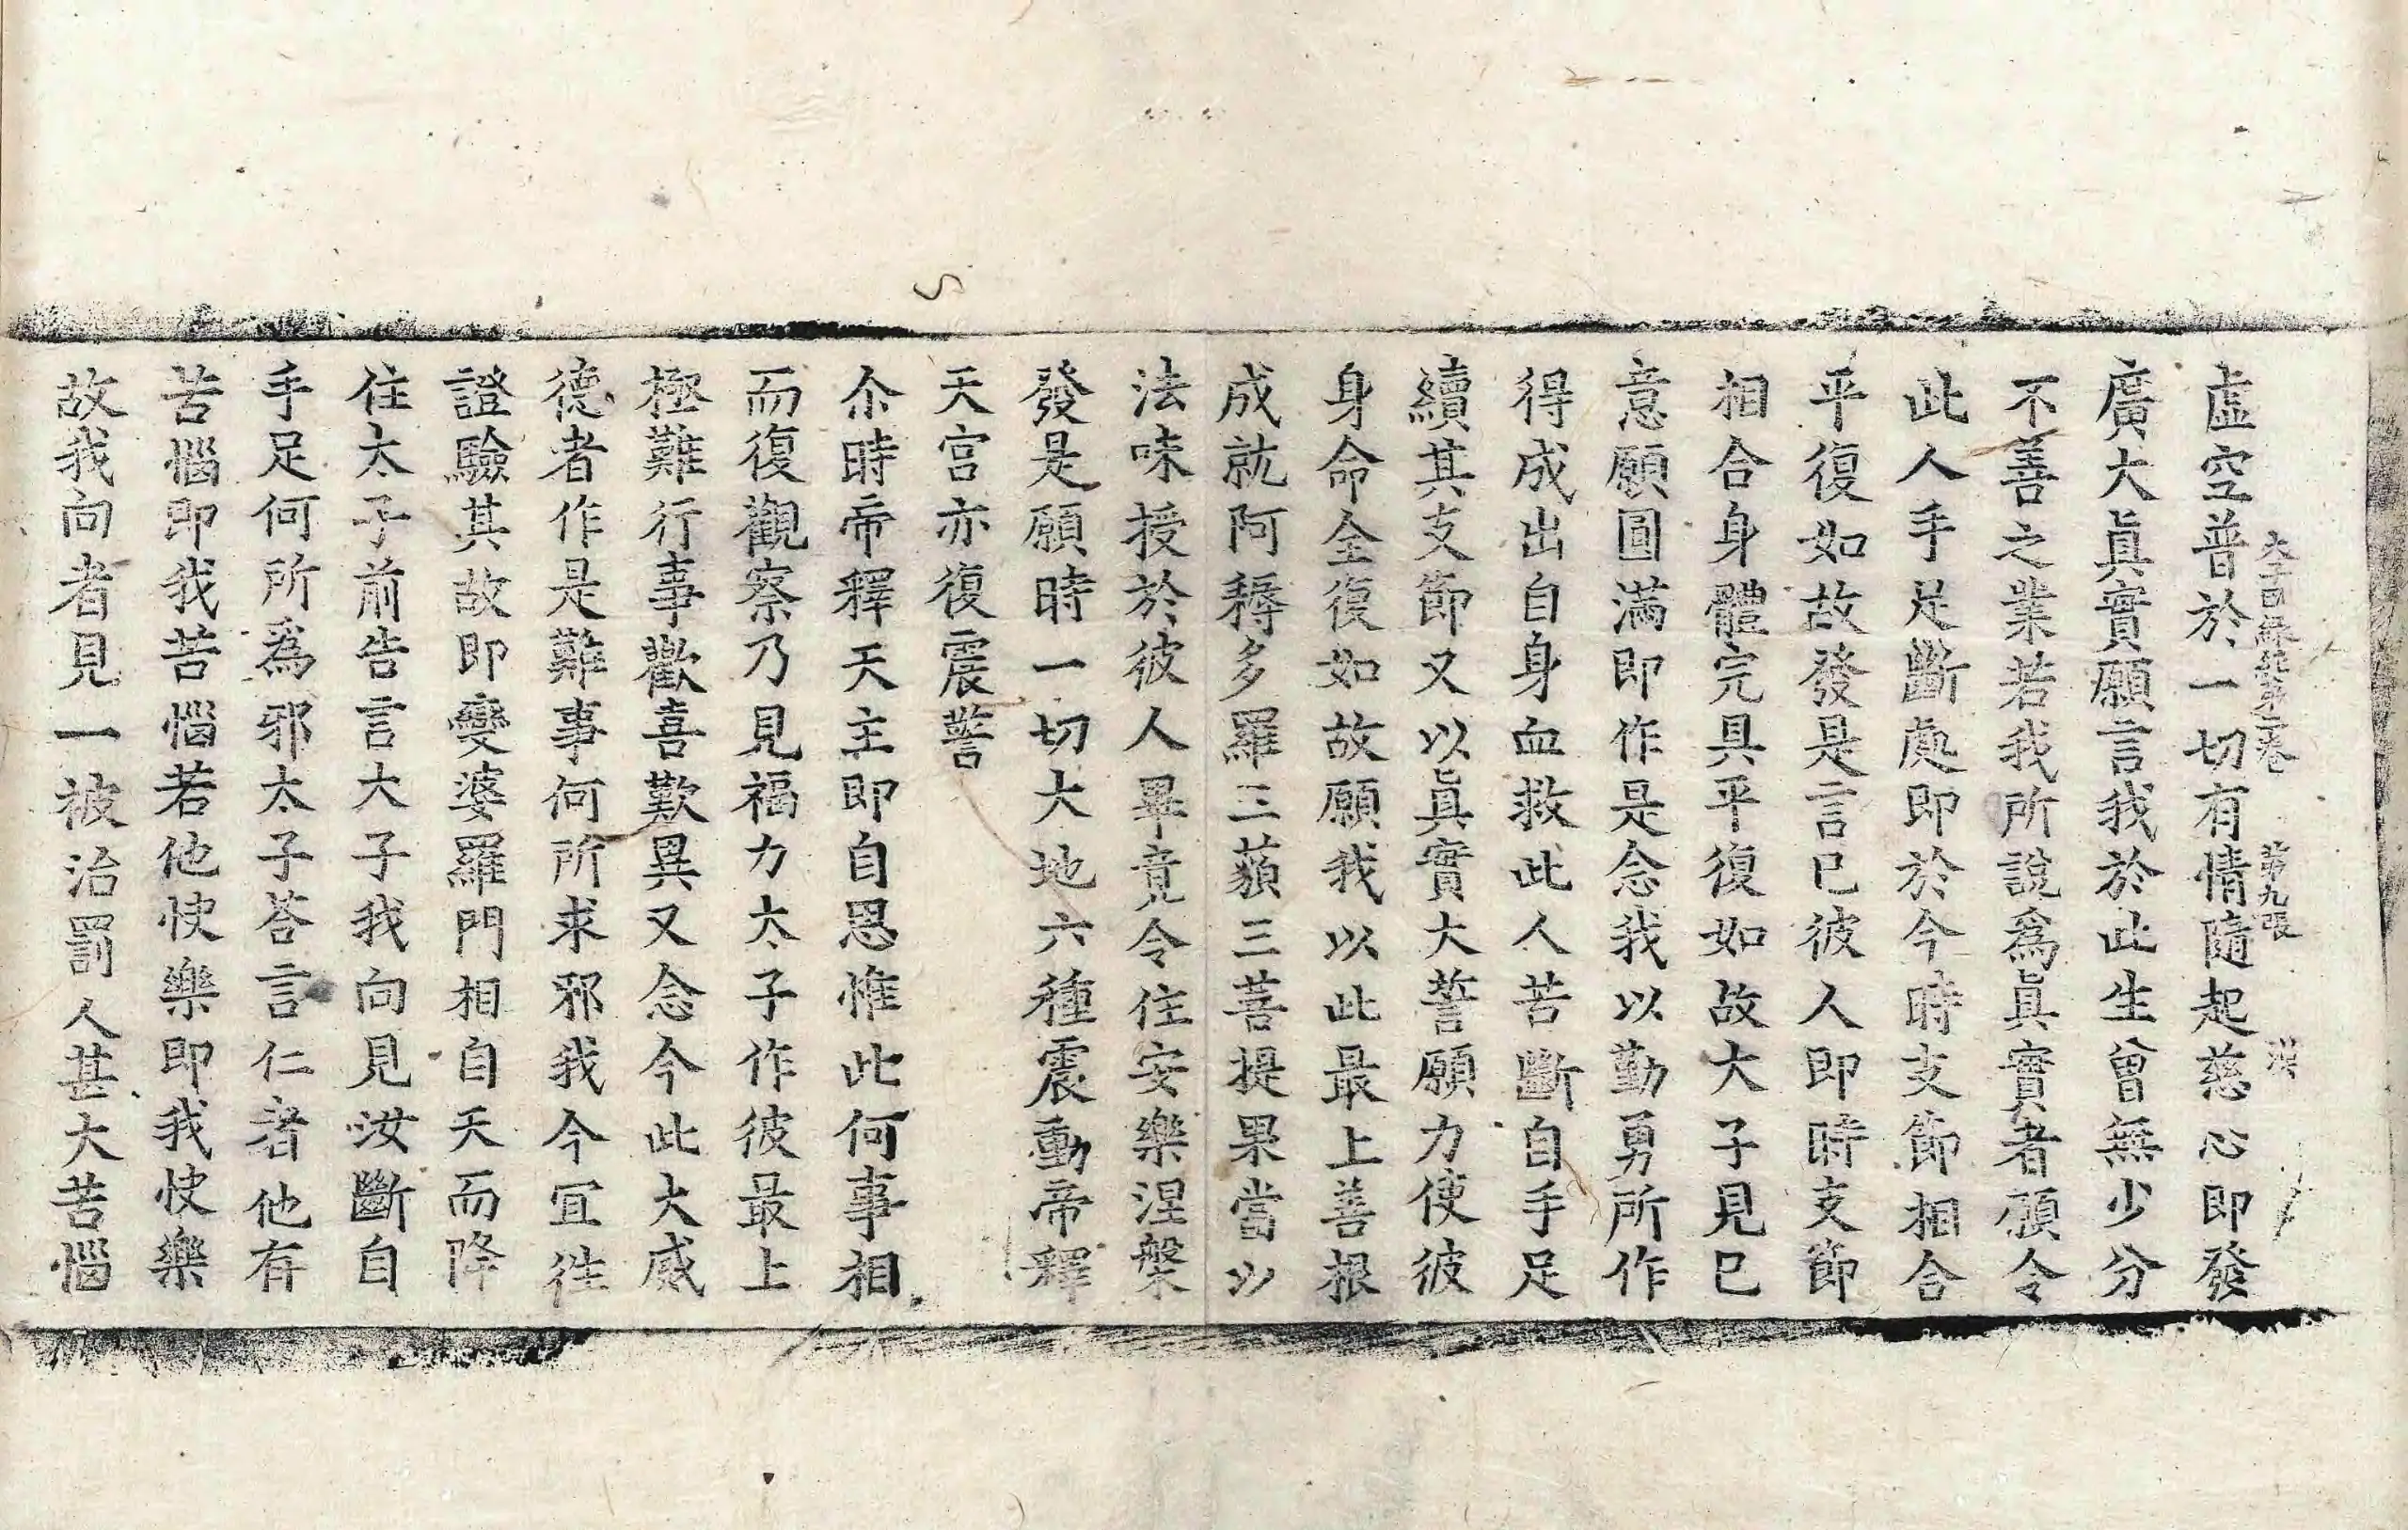 第九張
虛空普於一切有情隨起慈心即發
廣大眞實願言我於此生曾無少分
不善之業若我所說爲眞實者願令
此人手足斷處即於今時支節相合
平復如故發是言已彼人即時支節
相合身體完具平復如故大子見已
意願圓滿即作是念我以勤勇所作
得成出自身血救此人苦斷自手足
續其支節又以眞實大誓願力使彼
身命全復如故願我以此最上善根
成就阿耨多羅三藐三菩提果當以
法味授於彼人畢竟令住安樂涅槃
發是願時一切大地六種震動帝釋
天宮亦復震警
尒時帝釋天主即自思惟此何事相
而復觀察乃見福力太子作彼最上
極難行事歡喜歎異又念今此大威
德者作是難事何所求邪我今宜往
證驗其故即變婆羅門相自天而降
住太子前告言大子我向見汝斷自
手足何所爲邪太子荅言仁者他有
苦惱即我苦惱若他快樂即我快樂
故我向者見一被治罰人甚大苦惱